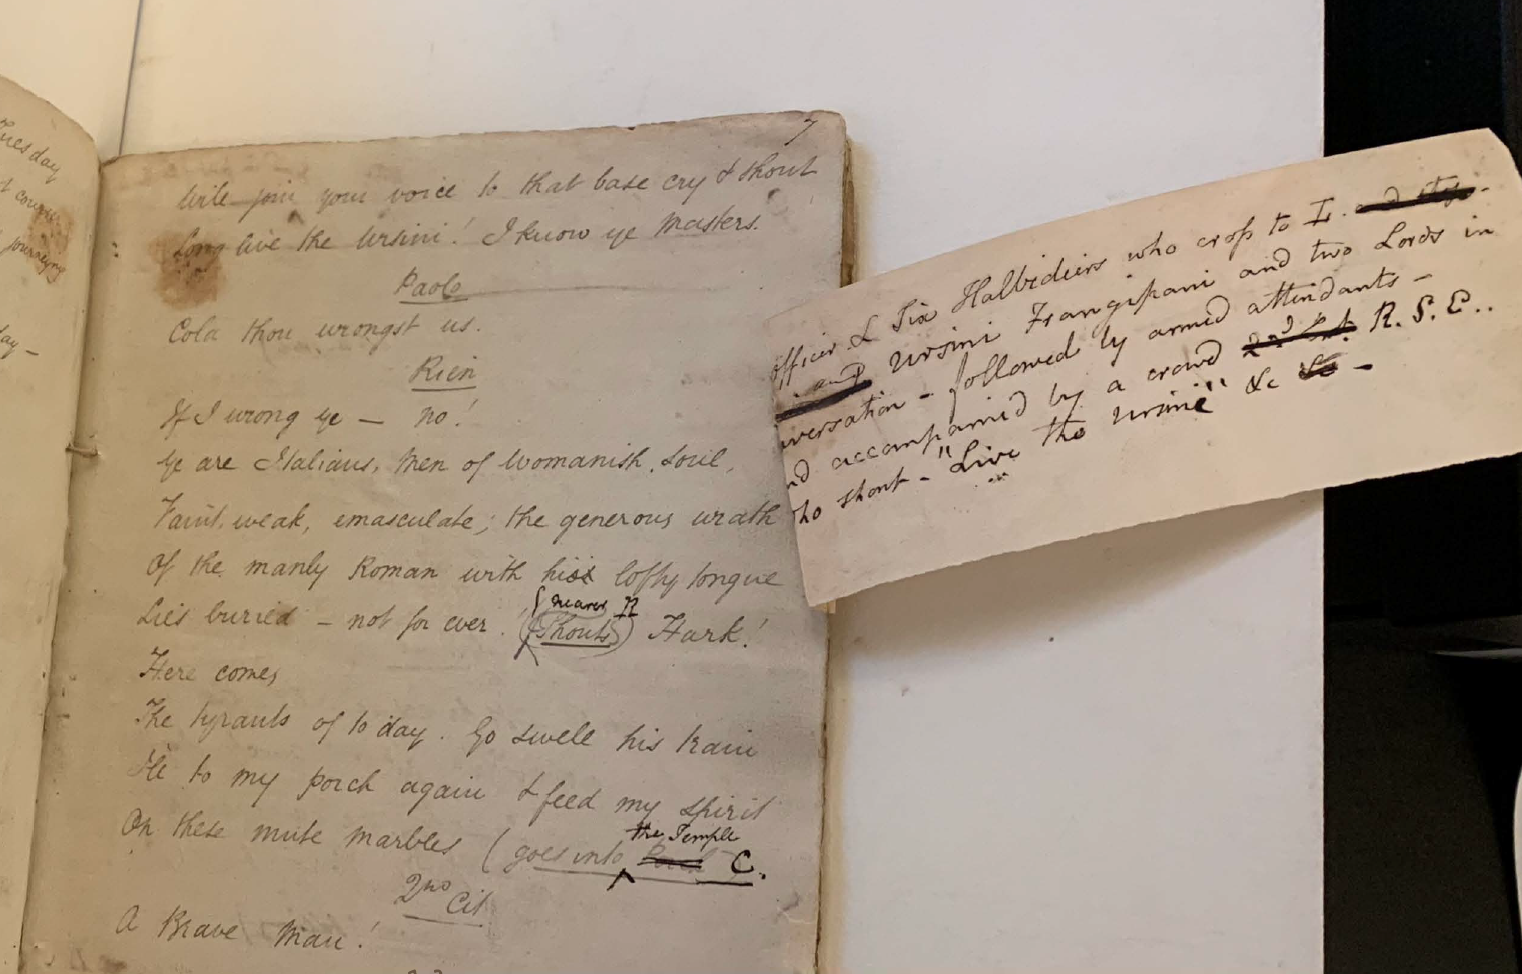 Tuesday
journeying
day —
7
Will join your voice to that base cry & shout
Long live the Ursini! I know ye Masters.
Paolo
Cola thou wrongst us.
Rien
If I wrong ye — no!
Ye are Italians, Men of womanish soul,
Faint, weak, emasculate; the generous wrath
Of the manly Roman with his lofty tongue
Lies buried — not for ever!
nearer R
(Shouts) Hark!
Here comes
The tyrants of to day. Go swell his train
He to my porch again & feed my spirit
On these mute marbles (goes into
the Temple
C.
2nd Cit
A Brave Man!
Officer & Six Halbidiers who cross to L.
and Ursini Frangipani and two Lords in
conversation - followed by armed attendants -
and accompanied by a crowd R. S. E..
who shout - "Live the Ursini" &c -